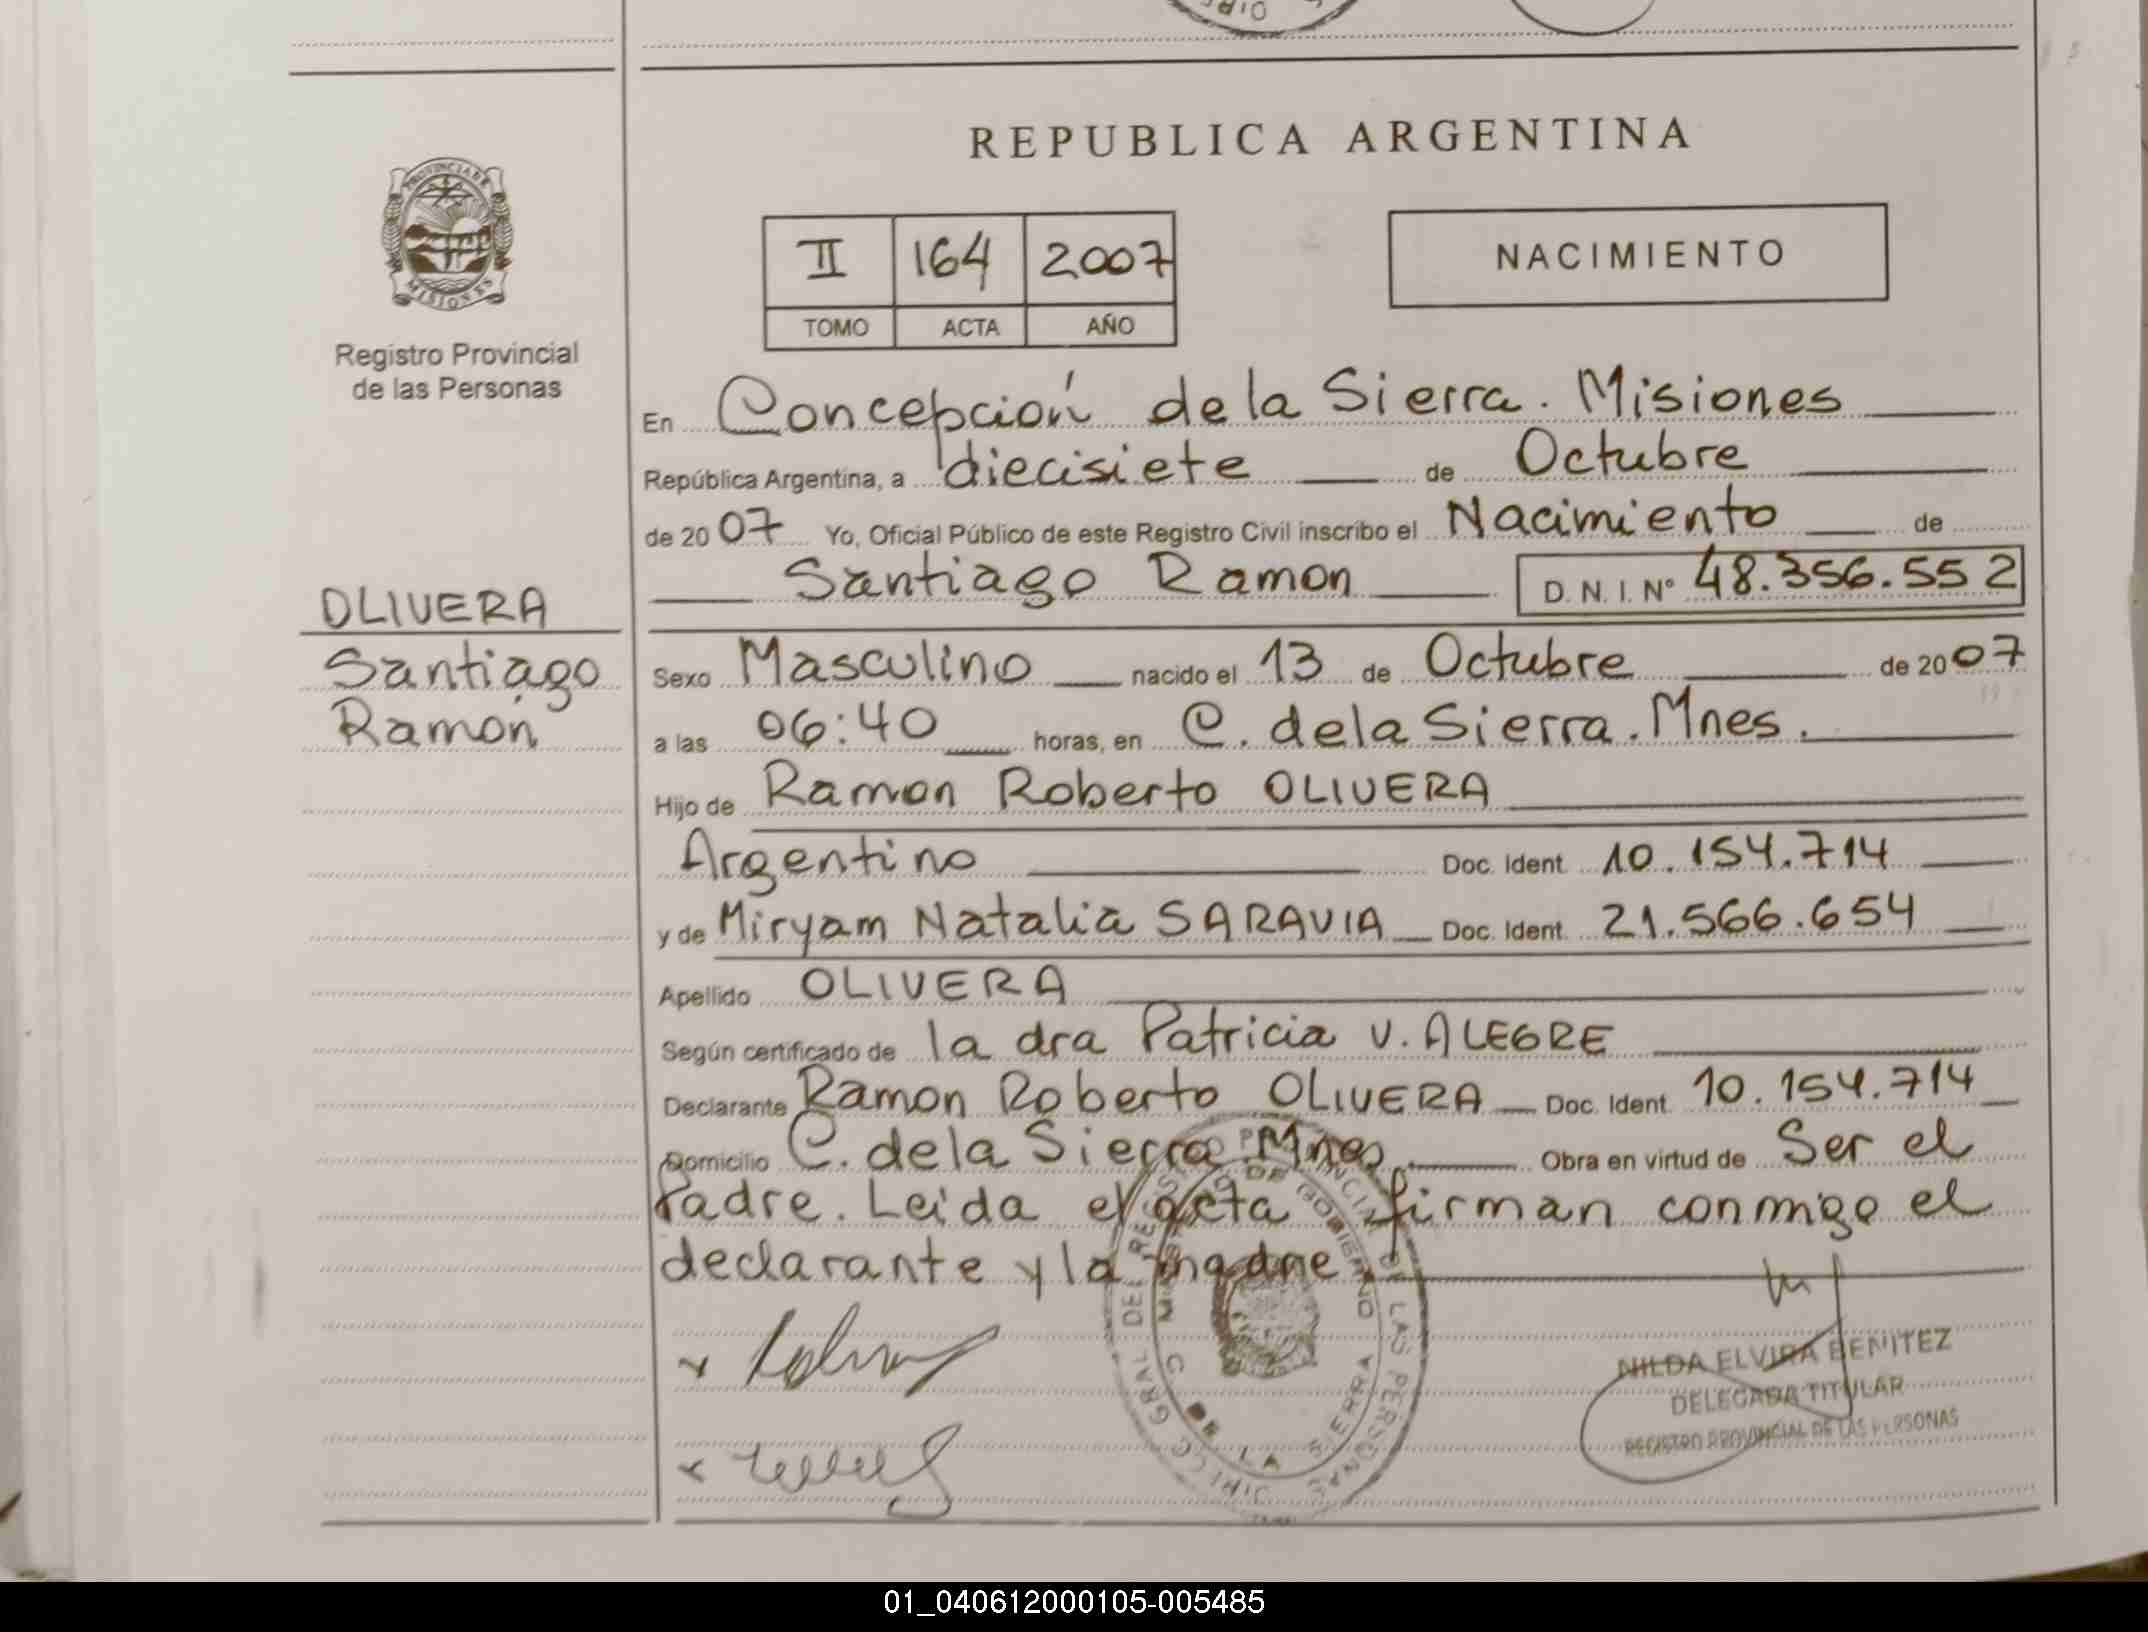 REPUBLICA ARGENTINA
PROVINCIA DE
MISIONES
Registro Provincial
de las Personas
II 164 2007
TOMO ACTA AÑO
NACIMIENTO
En Concepción de la Sierra. Misiones
República Argentina, a diecisiete de Octubre
de 2007 Yo, Oficial Público de este Registro Civil inscribo el Nacimiento de
Santiago Ramon D.N.I. Nº 48.356.552
OLIVERA
Santiago
Ramón
Sexo Masculino nacido el 13 de Octubre de 2007
a las 06:40 horas, en C. de la Sierra. Mnes.
Hijo de Ramon Roberto OLIVERA
Argentino Doc. Ident. 10.154.714
y de Miryam Natalia SARAVIA Doc. Ident. 21.566.654
Apellido OLIVERA
Según certificado de la dra Patricia V. ALEGRE
Declarante Ramon Roberto OLIVERA Doc. Ident. 10.154.714
Domicilio C. de la Sierra Mnes Obra en virtud de Ser el
Padre. Leida el acta firman conmigo el
declarante y la madre
NILDA ELVIRA BENITEZ
DELEGADA TITULAR
REGISTRO PROVINCIAL DE LAS PERSONAS
01_040612000105-005485